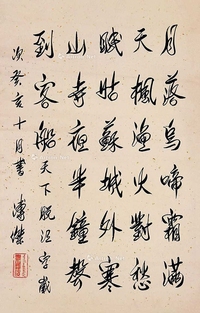 月落烏啼霜滿
天楓漁火對愁
眠姑蘇城外寒
山寺夜半鐘聲
到客船 天下脫江字 歲
次癸亥十月書 溥傑